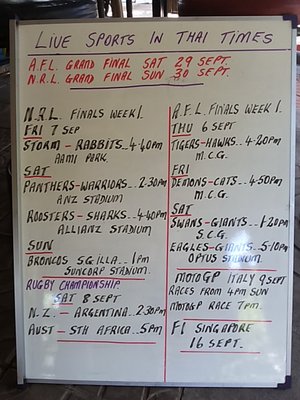 LIVE SPORTS IN THAI TIMES
A.F.L. GRAND FINAL SAT 29 SEPT.
N.R.L. GRAND FINAL SUN 30 SEPT.
N.R.L. FINALS WEEK 1.
FRI 7 SEP
STORM - RABBITS.. 4.40PM
AAMI PARK.
SAT
PANTHERS-WARRIORS... 2.30PM
ANZ STADIUM
ROOSTERS - SHARKS.. 4.40PM
ALLIANZ STADIUM
SUN
BRONCOS ST.G.ILLA.. 1PM
SUNCORP STADIUM.
RUGBY CHAMPIONSHIP.
SAT 8 SEPT
N.Z. - ARGENTINA. 2.30PM
AUST - STH AFRICA.. 5PM
A.F.L. FINALS WEEK 1.
THU 6 SEPT
TIGERS-HAWKS.. 4.20PM
M.C.G.
FRI
DEMONS - CATS.. 4.50PM
M.C.G.
SAT
SWANS-GIANTS.. 1.20PM
S.C.G.
EAGLES-GIANTS.. 5.10PM
OPTUS STADIUM
MOTO GP ITALY 9 SEPT
RACES FROM 4PM SUN
MOTOGP RACE 7PM.
F1 SINGAPORE
16 SEPT.